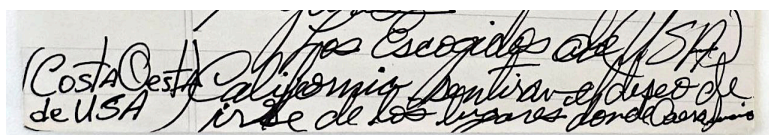 Los Escogidos de USA)
(Costa Oesta California sentiran el diseo de
de USA) irse de los lugares donde